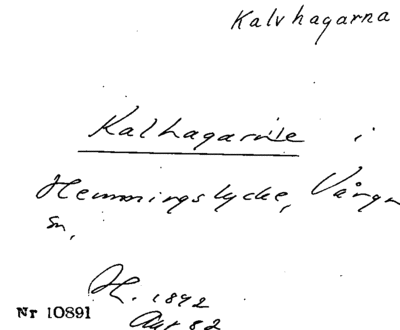 Kalvhagarna
Kalhagarne i
Hemmingslycke, Vårgn
sn,
H. 1892
Nr 10891